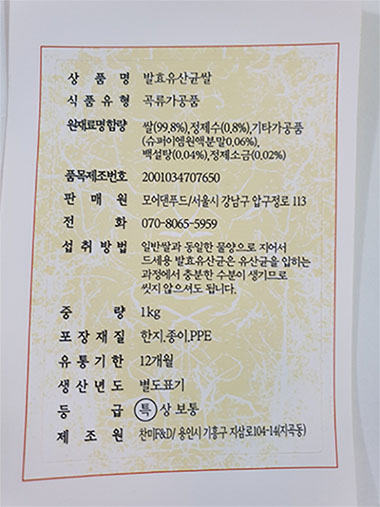 상품명 발효유산균쌀
식품유형 곡류가공품
원재료명함량 쌀(99,8%),정제수(0,8%),기타가공품
(슈퍼이엠원액분말0,06%),
백설탕(0,04%),정제소금(0,02%)
품목제조번호 2001034707650
판매원 모어댄푸드/서울시 강남구 압구정로 113
전화 070-8065-5959
섭취방법 일반쌀과 동일한 물양으로 지어서
드세용 발효유산균은 유산균을 입하는
과정에서 충분한 수분이 생기므로
씻지 않으셔도 됩니다.
중량 1kg
포장재질 한지,종이,PPE
유통기한 12개월
생산년도 별도표기
등급 특 상 보통
제조원 찬미F&D/ 용인시 기흥구 지삼로104-14(지곡동)